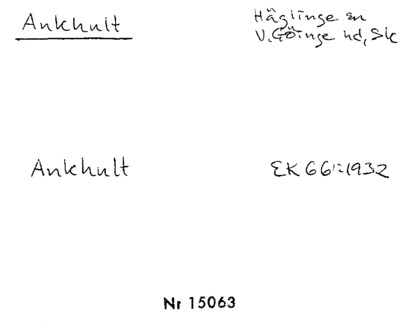 Ankhult
Häglinge sn
V. Göinge hd, Sk
Ankhult
EK 661:1932
Nr 15063